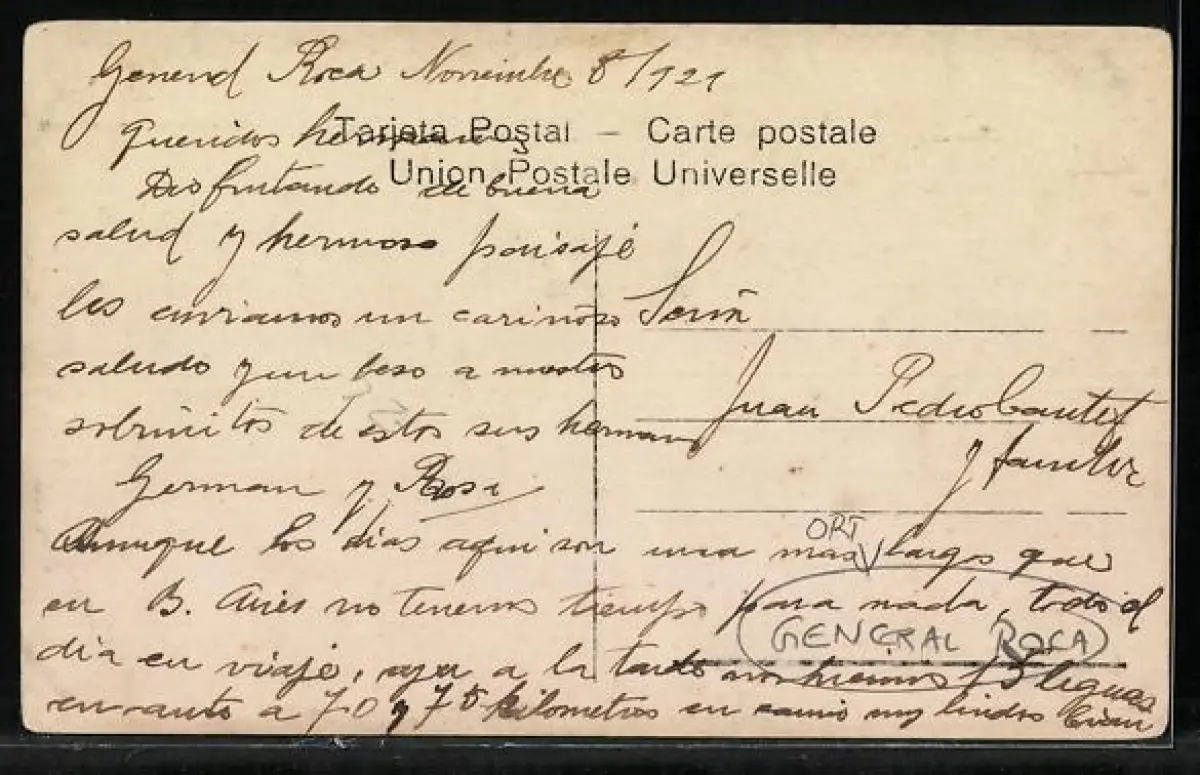 General Roca Noviembre 8/921
Tarjeta Postal – Carte postale
Union Postale Universelle
Queridos hermanos
Disfrutando de buena
salud y hermoso paisaje
les enviamos un cariñoso
saludo y un beso a nuestros
sobrinitos de estos sus hermanos
German y Rosa
Señor
Juan Pedro
y familia
Aunque los dias aqui son una mas largos que
en B. Aires no tenemos tiempo para nada, todo el
dia en viaje, ayer a la tarde nos hicimos 15 leguas
en auto a 70 y 75 kilometros en camino muy lindos
ORT
GENERAL ROCA